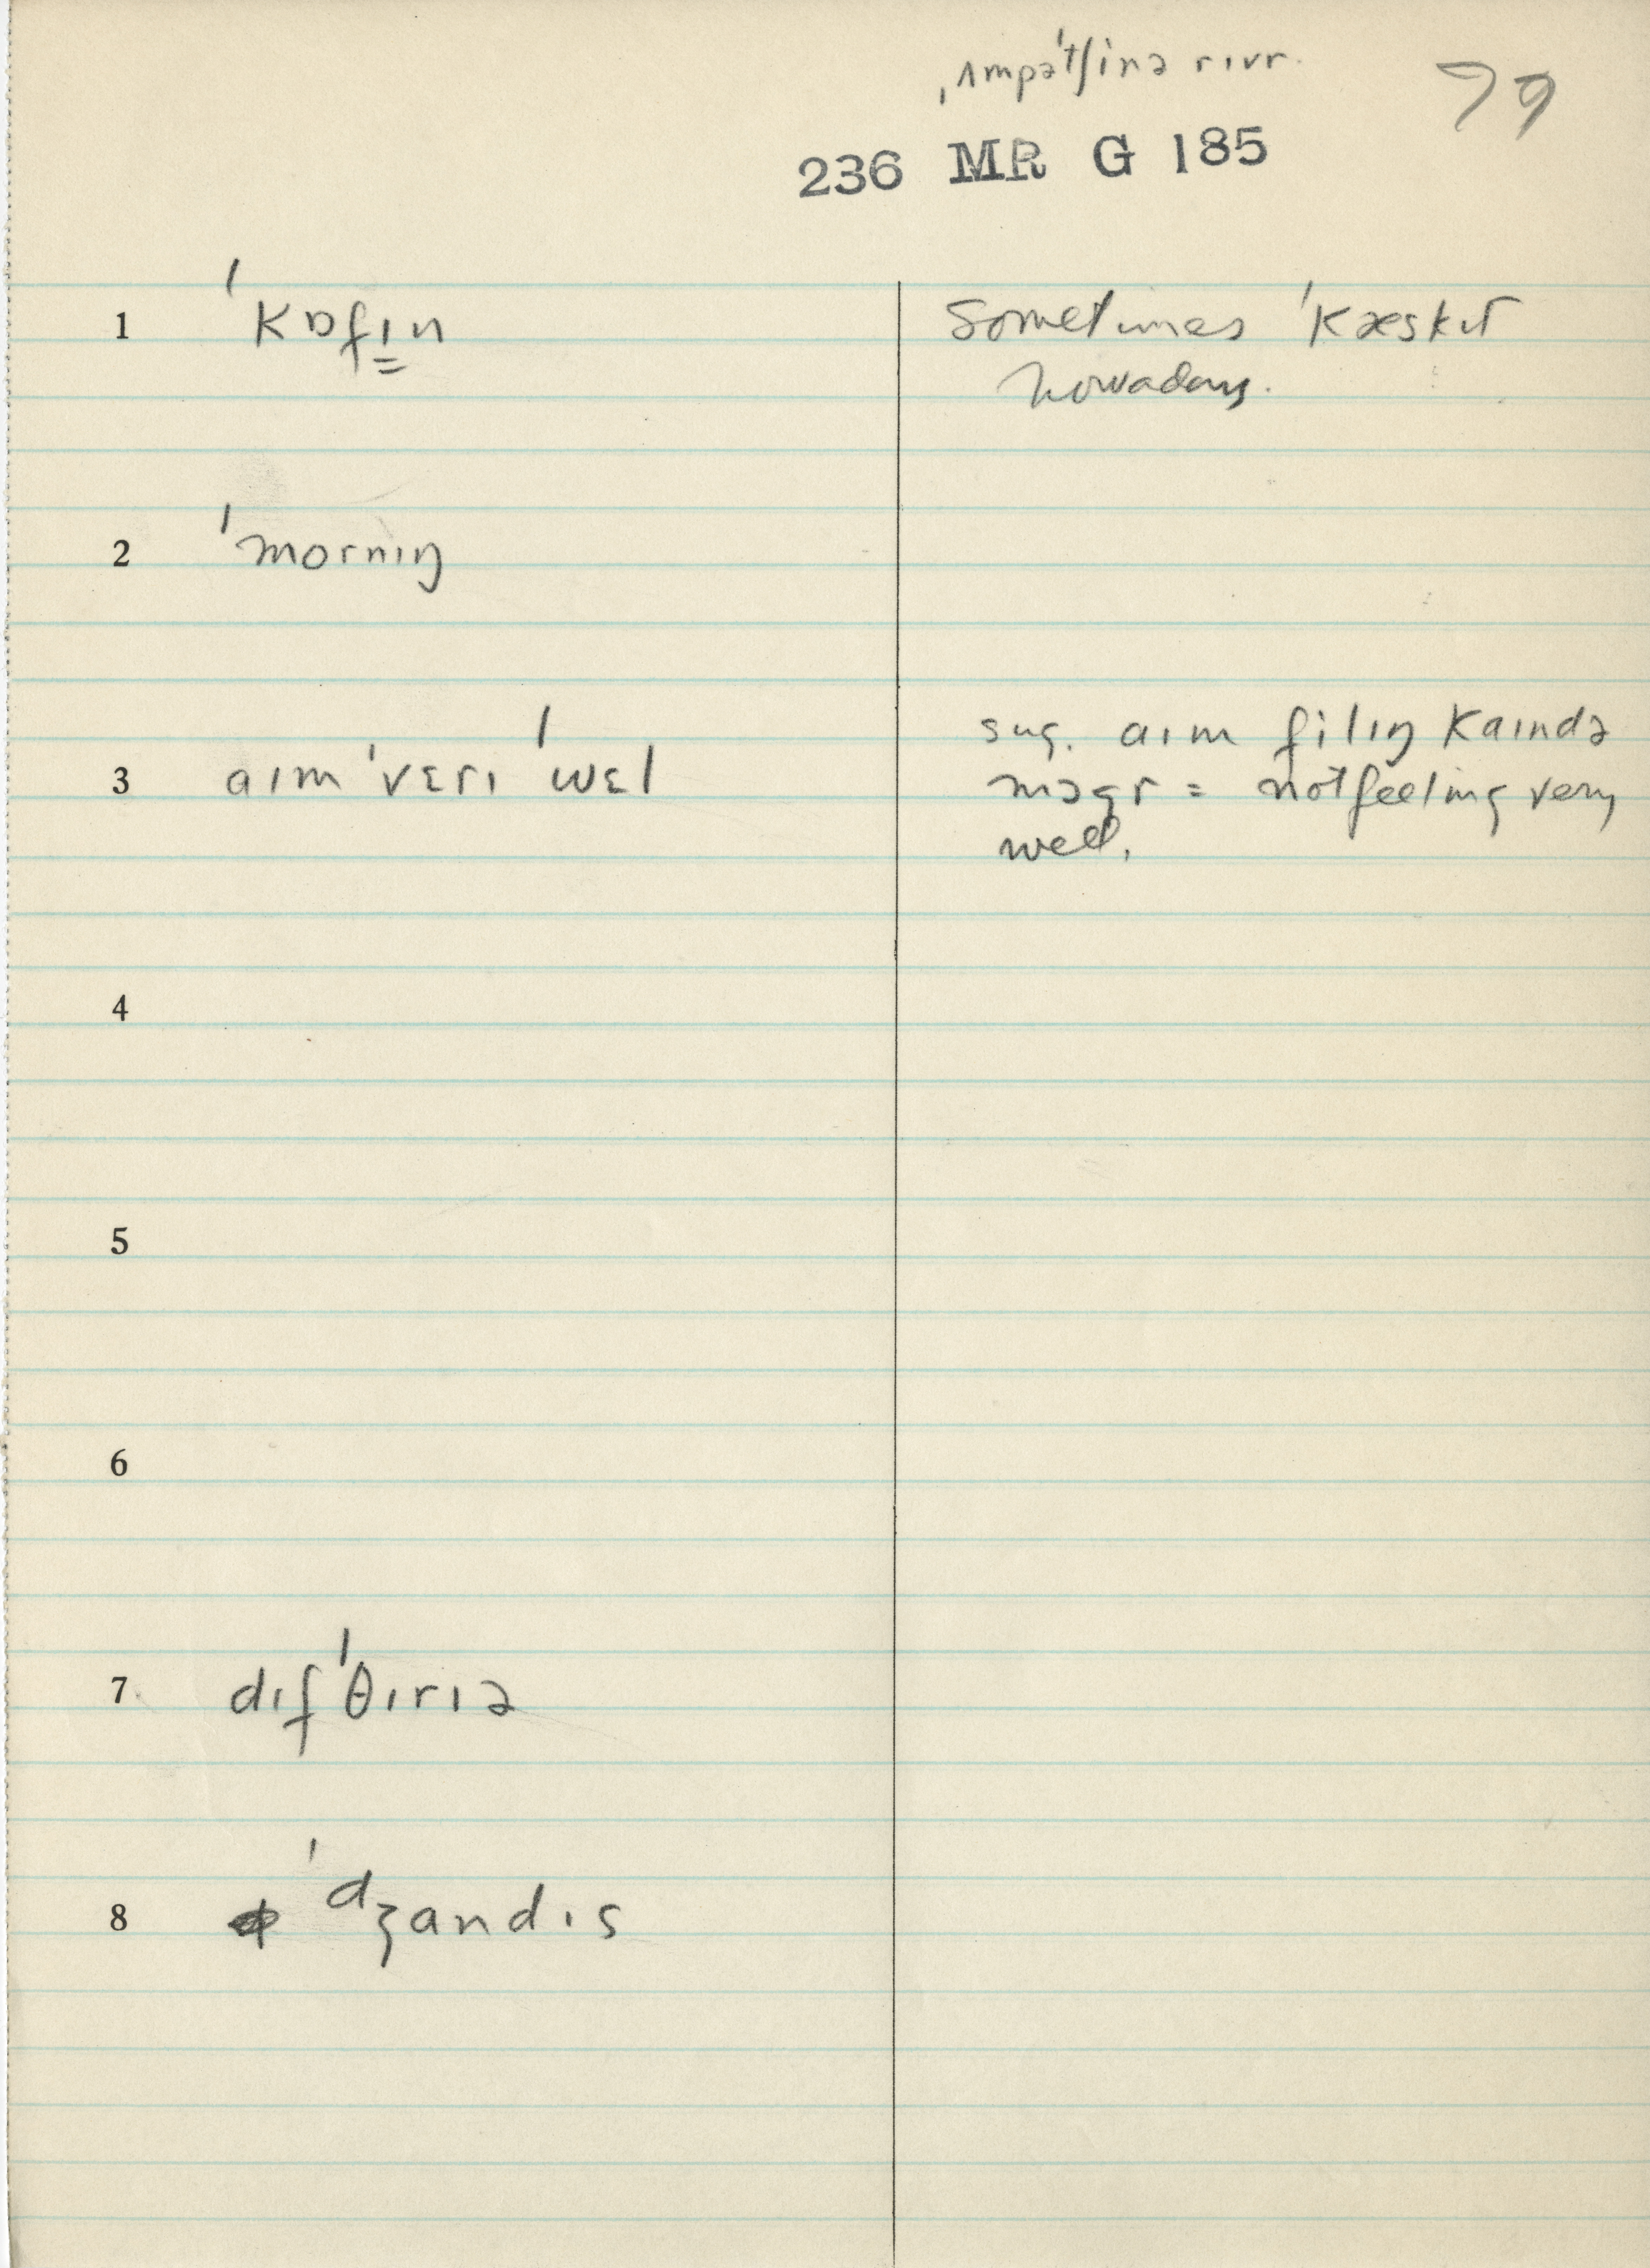 ˌʌmpəˈtʃinə rɪvr.
79
236 MR G 185
1 ˈkɒfɪn Sometimes ˈkæskɪt
nowadays.
2 ˈmornɪŋ
3 aɪm ˈvɛrɪ ˈwɛl sug. aɪm filɪŋ kaɪndə
mɔgr = not feeling very
well.
4
5
6
7 dɪfˈθɪrɪə
8 ˈdʒandɪs